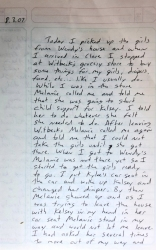 8.2.07
Today I picked up the girls
from Wendy's house and when
I arrived in Clare I stopped
at Witbecks grocery store to buy
some things for my girls, diapers,
food, etc... like I usually do.
While I was in the store
Melanie called me and told me
that she was going to start
child support for Kelsey. I told
her to do whatever she felt
she needed to do. Before leaving
Witbecks Melanie called me again
and told me that I could not
take the girls until she got
there. When I got to Wendy's
Melanie was not there yet so I
started to get the girls ready
to go. I put Kylee's car seat in
the car and woke up Kelsey and
changed her diaper. By then
Melanie showed up and as I
was trying to leave the house
with Kelsey in my hand in her
car seat Melanie stood in my
way and would not let me leave.
I had asked her several times
to move out of my way and